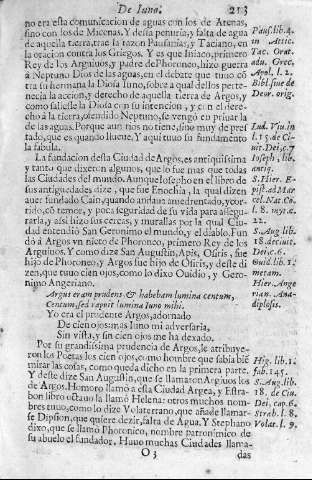 De Iuno.
213
no era esta comunicacion de aguas con los de Atenas,
sino con los de Micenas. Y desta penuria, y falta de agua
de aquella tierra, trae la razon Pausanias, y Taciano, en
la oracion contra los Griegos. Y es que Iniaco, primero
Rey de los Arguiuos, y padre de Phoronco, hizo guerra
à Neptuno Dios de las aguas, en el debate que tuuo cō
tra su hermana la Diosa Iuno, sobre à qual dellos perte-
necia la accion, y derecho de aquella tierra de Argos, y
como saliesse la Diosa con su intencion, y con el dere-
cho à la tierra, dolendo Neptuno, se vengò en priuar la
de las aguas. Porque aun rios no tiene, sino muy de pres
tado, que es cuando llueue. Y aqui tuuo su fundamento
la fabula.
La fundacion desta Ciudad de Argos, es antiquissima
y tanto que dixeron algunos, que lo fue mas que todas
las Ciudades del mundo. Aunque Iosepho en el libro de
sus antiguedades dize, que fue Enochia, la qual dizen
auer fundado Cain, quando andaua amedrentado, y cor-
rido, cō temor, y poca seguridad de su vida para assegu-
rarla, y assi hizo sus cercas, y murallas por la qual Ciu-
dad entendiò San Geronimo el mundo, y el diablo. Fun
dò à Argos vn nieto de Phoronco, primero Rey de los
Arguiuos. Y como dize San Augustin, Apis, Osiris, fue
hijo de Phoronco, y Argos fue hijo de Osiris, y deste di
zen, que tuuo cien ojos, como lo dixo Ouidio, y Gero-
nimo Angeriano.
Argus eram prudens & habebam lumina centum,
Centum, sed rapuit lumina Iuno mihi.
Yo era el prudente Argos, adornado
De cien ojos: mas Iuno mi aduersaria,
Sin vista, y sin cien ojos me ha dexado.
Por su grandissima prudencia de Argos, le atribuye-
ron los Poetas los cien ojos, como hombre que sabia biē
mirar las cosas, como queda dicho en la primera parte.
Y deste dize San Augustin, que se llamaron Argiuos los
de Argos. Homero llamò à esta Ciudad Argea, y Estra-
bon libro octauo la llamò Helena: otros muchos nom-
bres tuuo, como lo dize Volaterrano, que añade llamar-
se Dipsion, que quiere dezir, falta de Agua. Y Stephano
dixo, que se llamò Phoronico, nombre patronimico de
su abuelo el fundador. Huuo muchas Ciudades llama-
O 3
das
Paus. lib. 4.
in Attic.
Tac. Orat.
adu. Grec.
Apol. l. 2.
Bibl. siue de
Deor. orig.
Lud. Viu. in
l. 15. de Ci-
uit. Dei, c. 7
Ioseph, lib.
antiq.
S. Hier. E-
pist. ad Mar
cel.
22.
S. Aug. lib.
18. de ciuit.
Dei, c. 6.
Ouid. lib. 1.
metam.
Hier. Ange
rian. Ana-
diplosis.
Hig. lib. 1.
fab. 145.
S. Aug. lib.
18. de Ciu.
Dei, cap. 6.
Strab. l. 8.
Volat. l. 9.